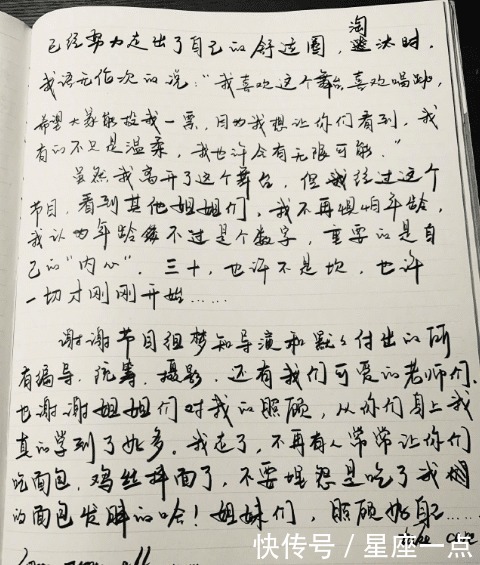 已经努力走出了自己的舒适圈，淘汰时，
我语无伦次的说："我喜欢这个舞台，喜欢唱跳，
希望大家能投我一票，因为我想让你们看到，我
有的不只是温柔，我也许会有无限可能。"
虽然我离开了这个舞台，但我经过这个
节目，看到其他姐姐们，我不再惧怕年龄，
我认为年龄只不过是个数字，重要的是自
己的"内心"，三十，也许不是坎，也许
一切才刚刚开始……
谢谢节目组梦知导演和默默付出的所
有编导，统筹，摄影，还有我们可爱的老师们，
也谢谢姐姐们对我的照顾，从你们身上我
真的学到了好多。我走了，不再有人常常让你们
吃面包，鸡丝拌面了，不要埋怨是吃了我
的面包发胖的哈！姐妹们，照顾好自己……
take care
快传号／星座一点